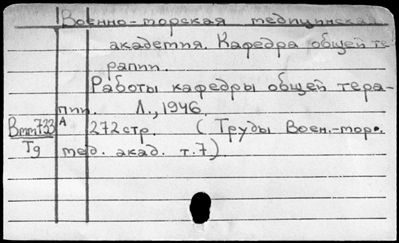 Военно-морская медицинская
академия. Кафедра общей те-
рапии.
Работы кафедры общей тера-
пии. Л., 1946.
Втт733 А 272 стр. (Труды Воен.-мор.
Тд мед. акад. т.7).